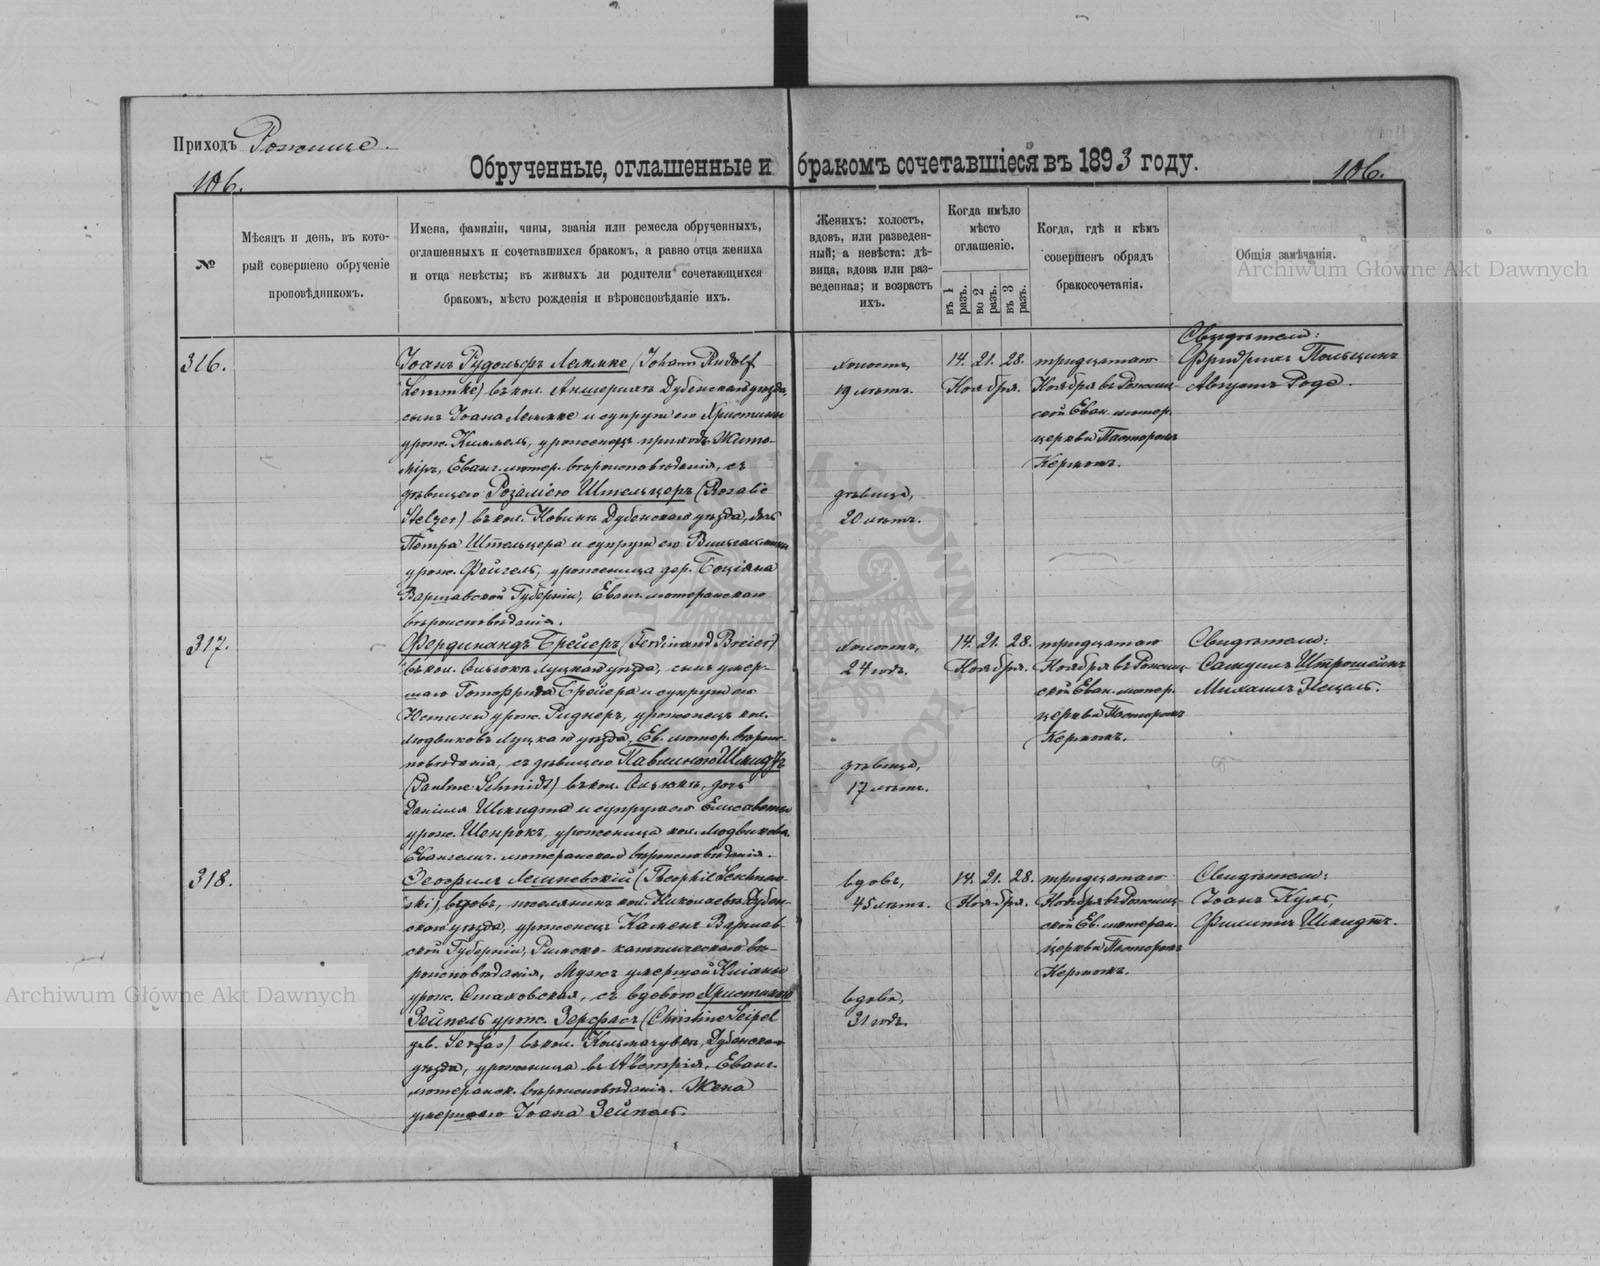 Приходъ Рожище.
106.
Обрученные, оглашенные и бракомъ сочетавшіеся въ 1893 году.
106.
№
Мѣсяцъ и день, въ кото-
рый совершено обрученіе
проповѣдникомъ.
Имена, фамиліи, чины, званія или ремесла обрученныхъ,
оглашенныхъ и сочетавшихся бракомъ, а равно отца жениха
и отца невѣсты; въ живыхъ ли родители сочетающихся
бракомъ, мѣсто рожденія и вѣроисповѣданіе ихъ.
Женихъ: холостъ,
вдовъ, или разведен-
ный; а невѣста: дѣ-
вица, вдова или раз-
веденная; и возрастъ
ихъ.
Когда имѣло
мѣсто
оглашеніе.
въ 1 разъ.
во 2 разъ.
въ 3 разъ.
Когда, гдѣ и кѣмъ
совершенъ обрядъ
бракосочетанія.
Общія замѣчанія.
316.
Іоанъ Рудольфъ Леммке (Johann Rudolf
Lemmke) въ кол. Дубенскаго уѣзда,
сынъ Іоана Леммке и супруги его Христины
урож. Киммель, уроженецъ прихода Жито-
міръ, Еванг. лютер. вѣроисповѣданія, съ
дѣвицею Розаліею Штельцеръ (Rosalie
Stelzer) въ кол. Новины Дубенскаго уѣзда, дочь
Петра Штельцера и супруги его Вильгельмины
урож. Фейгель, уроженица дер. Боціана
Варшавской Губерніи, Еванг. лютеранскаго
вѣроисповѣданія.
холостъ,
19 лѣтъ.
дѣвица,
20 лѣтъ.
14. 21. 28.
Ноября.
тридцатаго
Ноября въ Рожищ-
ской Еван. лютер.
церкви Пасторомъ
Кермомъ.
Свидѣтели:
Фридрихъ Польцинъ
Августъ Роде.
317.
Фердинандъ Брейеръ (Ferdinand Breier)
въ кол. Луцкаго уѣзда, сынъ умер-
шаго Готфрида Брейера и супруги его
Юстины урож. Риднеръ, уроженецъ кол.
Людвиковъ Луцкаго уѣзда, Ев. лютер. вѣроис-
повѣданія, съ дѣвицею Павлиною Шмидтъ
(Pauline Schmidt) въ кол. дочь
Даніила Шмидта и супруги его Елисаветы
урож. Шенрокъ, уроженица кол. Людвиковъ
Евангелич. лютеранскаго вѣроисповѣданія.
холостъ,
24 годъ.
дѣвица,
17 лѣтъ.
14. 21. 28.
Ноября.
тридцатаго
Ноября въ Рожищ-
ской Еван. лютер.
церкви Пасторомъ
Кермомъ.
Свидѣтели:
Самуилъ Штрошейнъ
Михаилъ Нецель.
318.
Теофилъ Лешневскій (Theophil Leschnew-
ski), вдовъ, поселянинъ кол. Николаевка Дубен-
скаго уѣзда, уроженецъ Камень Варшав-
ской Губерніи, Римско-католическаго вѣ-
роисповѣданія, Мужъ умершей Юліаны
урож. Стаховская, съ вдовою Христиною
Зейпель урож. Зерфасъ (Christine Seipel
geb. Serfas) въ кол. Дубенскаго
уѣзда, уроженица въ Австріи, Еванг.
лютеранск. вѣроисповѣданія. Жена
умершаго Іоана Зейпель.
вдовъ,
45 лѣтъ.
вдова,
31 годъ.
14. 21. 28.
Ноября.
тридцатаго
Ноября въ Рожищ-
ской Ев. лютеран.
церкви Пасторомъ
Кермомъ.
Свидѣтели:
Іоанъ Куль,
Филиппъ Шмидтъ.
Archiwum Główne Akt Dawnych
Archiwum Główne Akt Dawnych